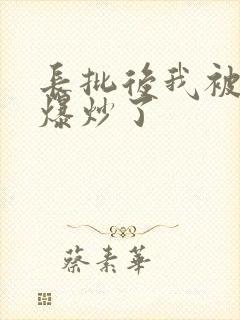 長批後我被
爆炒了
蔡素華